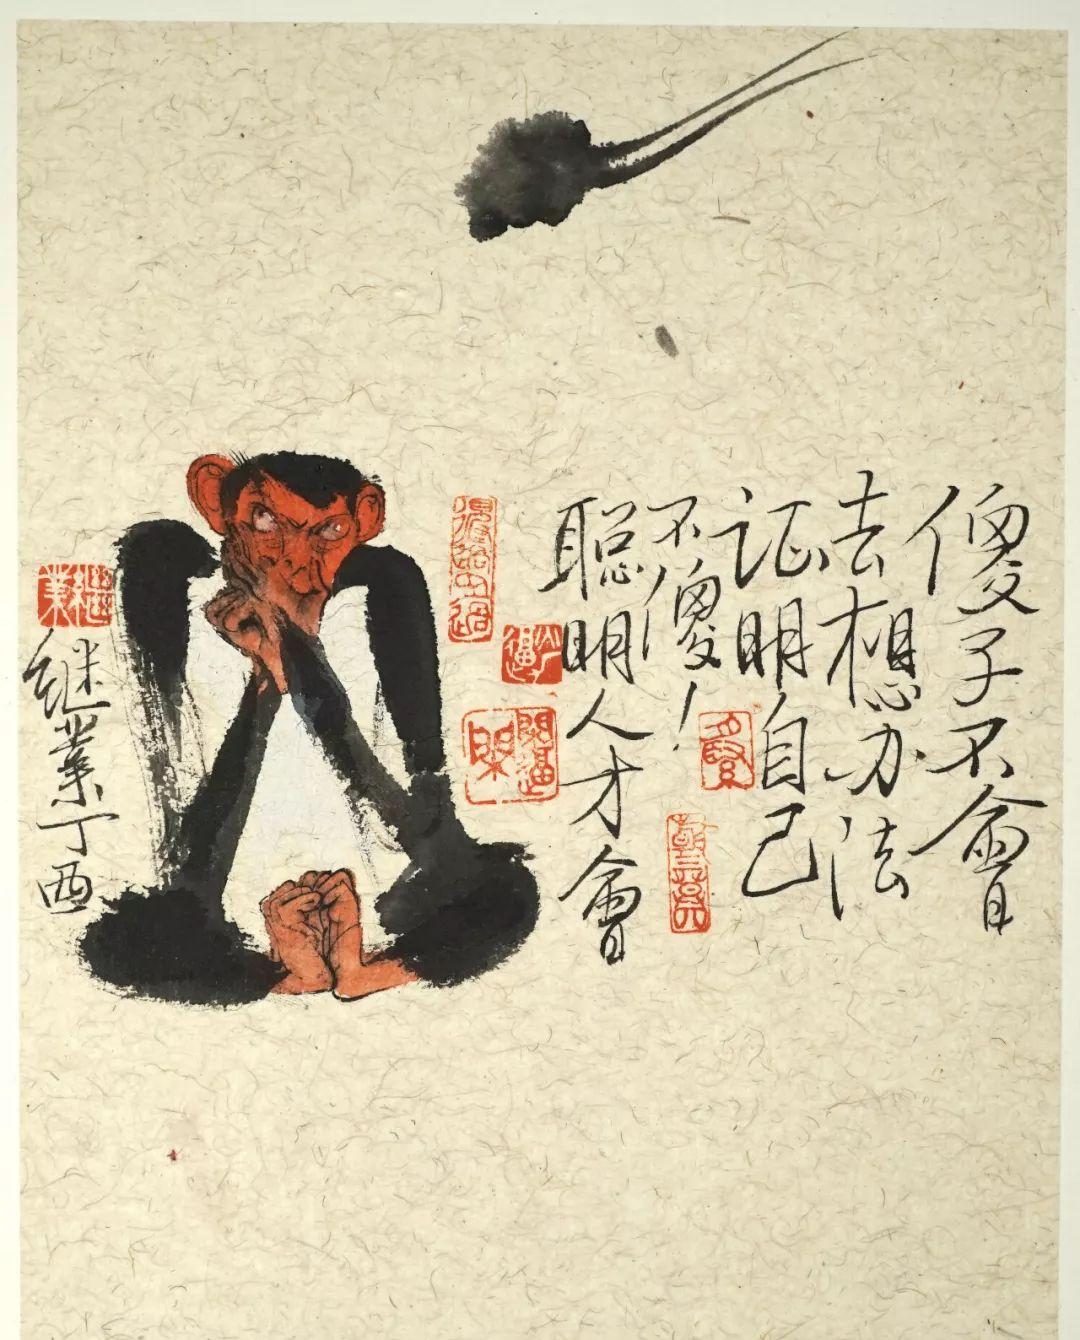 傻子不會
去想办法
证明自己
不傻！
聪明人才會
继業丁酉
继業